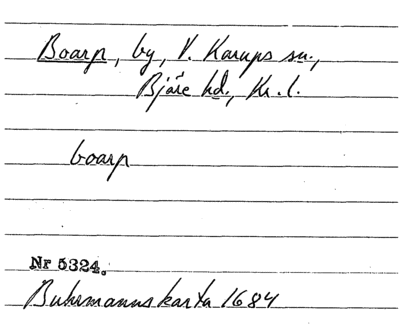 Boarp, by, V. Karups sn.,
Bjäre hd., Kr. l.
boarp
Nr 5324.
Buhrmanns karta 1684